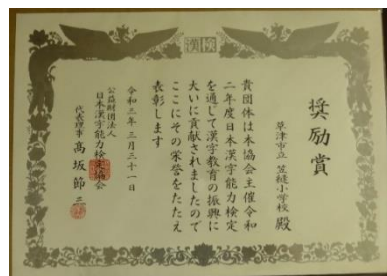 漢検
奨励賞
草津市立 笠縫小学校 殿
貴団体は本協会主催令和
二年度日本漢字能力検定
を通じて漢字教育の振興に
大いに貢献されましたので
ここにその栄誉をたたえ
表彰します
令和三年三月三十一日
公益財団法人
日本漢字能力検定協会
代表理事 髙坂節三